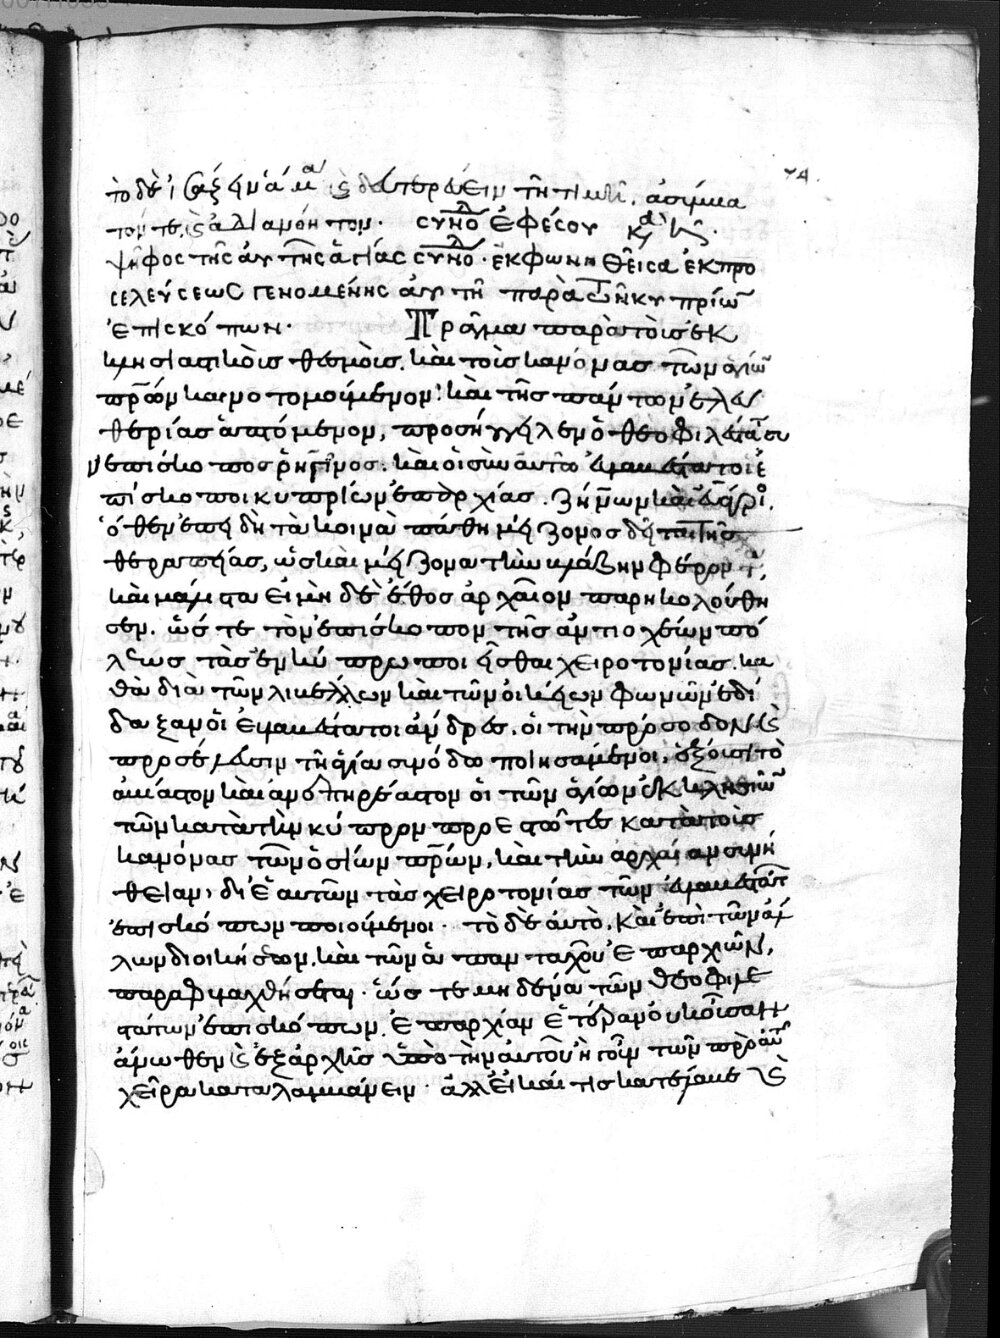 74.
τὸ δὲ ἀξίωμα καὶ δευτερεύειν τῇ τιμῇ, ἀσύμβα
τόν τε καὶ ἀδιανόητον. συνόδ ἐφέσου
ψῆφος τῆς αὐτῆς ἁγίας συνόδ. ἐκφωνηθεῖσα ἐκ προ
σελεύσεως γενομένης αὐτῇ παρὰ τῶν κυπρίων
ἐπισκόπων. Πρᾶγμα παρὰ τοὺς ἐκ
κλησιαστικοὺς θεσμοὺς, καὶ τοὺς κανόνας τῶν ἁγίων
πρων καινοτομούμενον. καὶ τῆς πάντων ἐλευ
θερίας ἁπτόμενον, προσήγγειλεν ὁ θεοφιλέστατος συ
νεπίσκοπος ῥηγῖνος. καὶ οἱ σὺν αὐτῷ εὐλαβέστατοι ἐ
πίσκοποι κυπρίων ἐπαρχίας. ζήνων καὶ εὐάγριος.
ὅθεν ἐπειδὴ τὰ κοινὰ πάθη μείζονος δεῖται τῆς
θεραπείας, ὡς καὶ μείζονα τὴν βλάβην φέροντα,
καὶ μάλιστα εἰ μηδὲ ἔθος ἀρχαῖον παρηκολούθη
σεν. ὥστε τὸν ἐπίσκοπον τῆς ἀντιοχέων πό
λεως τὰς ἐν κύπρω ποιεῖσθαι χειροτονίας. κα
θὰ διὰ τῶν λιβέλλων καὶ τῶν οἰκείων φωνῶν ἐδί
δαξαν οἱ εὐλαβέστατοι ἄνδρες. οἱ τὴν πρόσοδον καὶ
προσέλευσιν τῇ ἁγία συνόδω ποιησάμενοι, ἕξουσι τὸ
ἀνέαστον καὶ ἀνεπηρέαστον οἱ τῶν ἁγίων ἐκκλησιῶν
τῶν κατὰ τὴν κύπρον προεστῶτες κατὰ τοὺς
κανόνας τῶν ὁσίων πρων, καὶ τὴν ἀρχαίαν συνή
θειαν, δι ἑαυτῶν τὰς χειροτονίας τῶν εὐλαβεστάτ
ἐπισκόπων ποιούμενοι. τὸ δὲ αὐτὸ, καὶ ἐπὶ τῶν ἄλ
λων διοικήσεων, καὶ τῶν ἁπανταχοῦ ἐπαρχιῶν,
παραφυλαχθήσεται. ὥστε μηδένα τῶν θεοφιλε
στάτων ἐπισκόπων. ἐπαρχίαν ἑτέραν οὐκ οὖσαν
ἄνωθεν καὶ ἐξ ἀρχῆς ὑπὸ τὴν αὐτοῦ ἤγουν τῶν πρὸ αὐτοῦ
χεῖρα καταλαμβάνειν. ἀλλ εἰ καί τις κατέλαβε καὶ